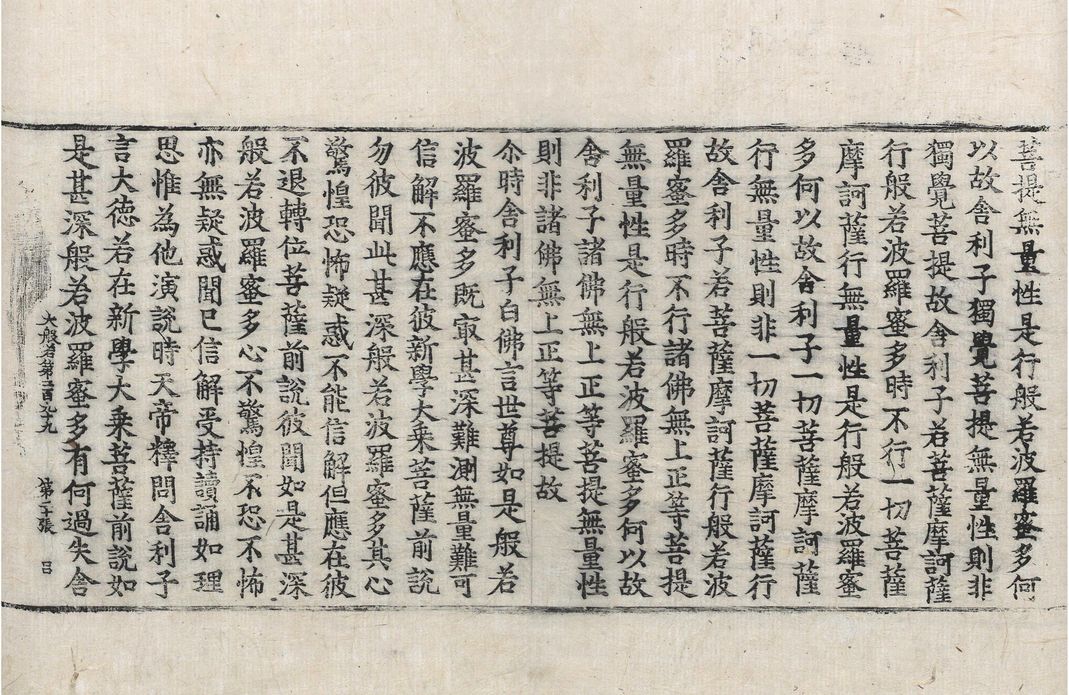 菩提無量性是行般若波羅蜜多何
以故舍利子獨覺菩提無量性則非
獨覺菩提故舍利子若菩薩摩訶薩
行般若波羅蜜多時不行一切菩薩
摩訶薩行無量性是行般若波羅蜜
多何以故舍利子一切菩薩摩訶薩
行無量性則非一切菩薩摩訶薩行
故舍利子若菩薩摩訶薩行般若波
羅蜜多時不行諸佛無上正等菩提
無量性是行般若波羅蜜多何以故
舍利子諸佛無上正等菩提無量性
則非諸佛無上正等菩提故
尒時舍利子白佛言世尊如是般若
波羅蜜多既㝡甚深難測無量難可
信解不應在彼新學大乘菩薩前說
勿彼聞此甚深般若波羅蜜多其心
驚惶恐怖疑惑不能信解但應在彼
不退轉位菩薩前說彼聞如是甚深
般若波羅蜜多心不驚惶不恐不怖
亦無疑惑聞已信解受持讀誦如理
思惟為他演說時天帝釋問舍利子
言大德若在新學大乘菩薩前說如
是甚深般若波羅蜜多有何過失舍
大般若第二百九十九 第二十張 呂